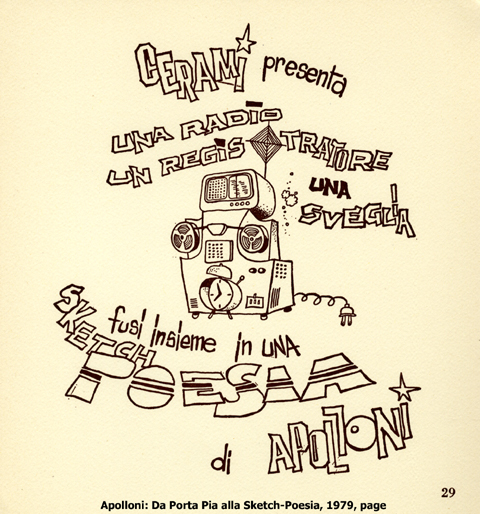 CERAMI presenta
UNA RADIO
UN REGISTRATORE
UNA
SVEGLIA
fusi insieme in UNA
SKETCH
POESIA
di APOLLONI
29
Apolloni: Da Porta Pia alla Sketch-Poesia, 1979, page